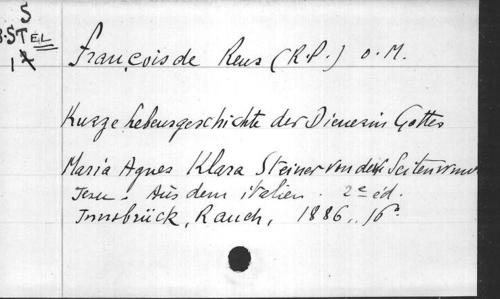 S
B.STEL
17
François de Reus (R.P.) O.M.
Kurze Lebensgeschichte der Dienerin Gottes
Maria Agnes Klara Steiner von der Seitenwunde
Jesu. Aus dem italien. 2e éd.
Innsbrück, Rauch, 1886, 16°